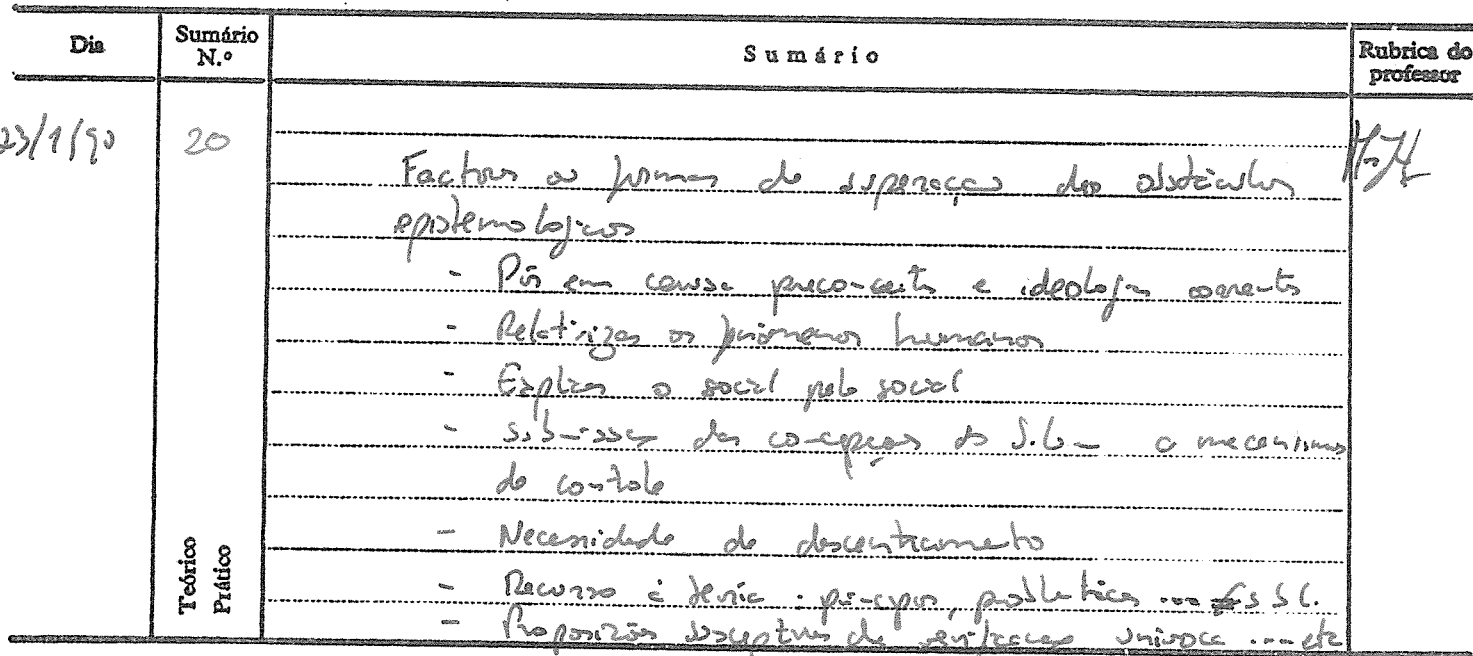 Dia
Sumário N.º
Sumário
Rubrica do professor
23/1/90
20
Factores ou formas de superação dos obstáculos
epistemológicos
- Pôr em causa preconceitos e ideologias correntes
- Relativizar os fenómenos humanos
- Explicar o social pelo social
- Submissão das concepções do S. a mecanismos
de controle
- Necessidade de descentramento
- Recurso à teoria: princípios, ... C.
- Proposições susceptíveis de verificação unívoca ... etc
Teórico
Prático